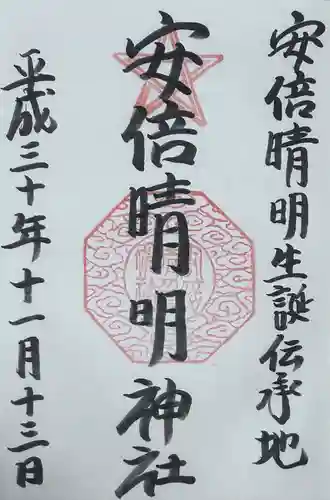 安倍晴明生誕伝承地
安倍晴明神社
平成三十年十一月十三日